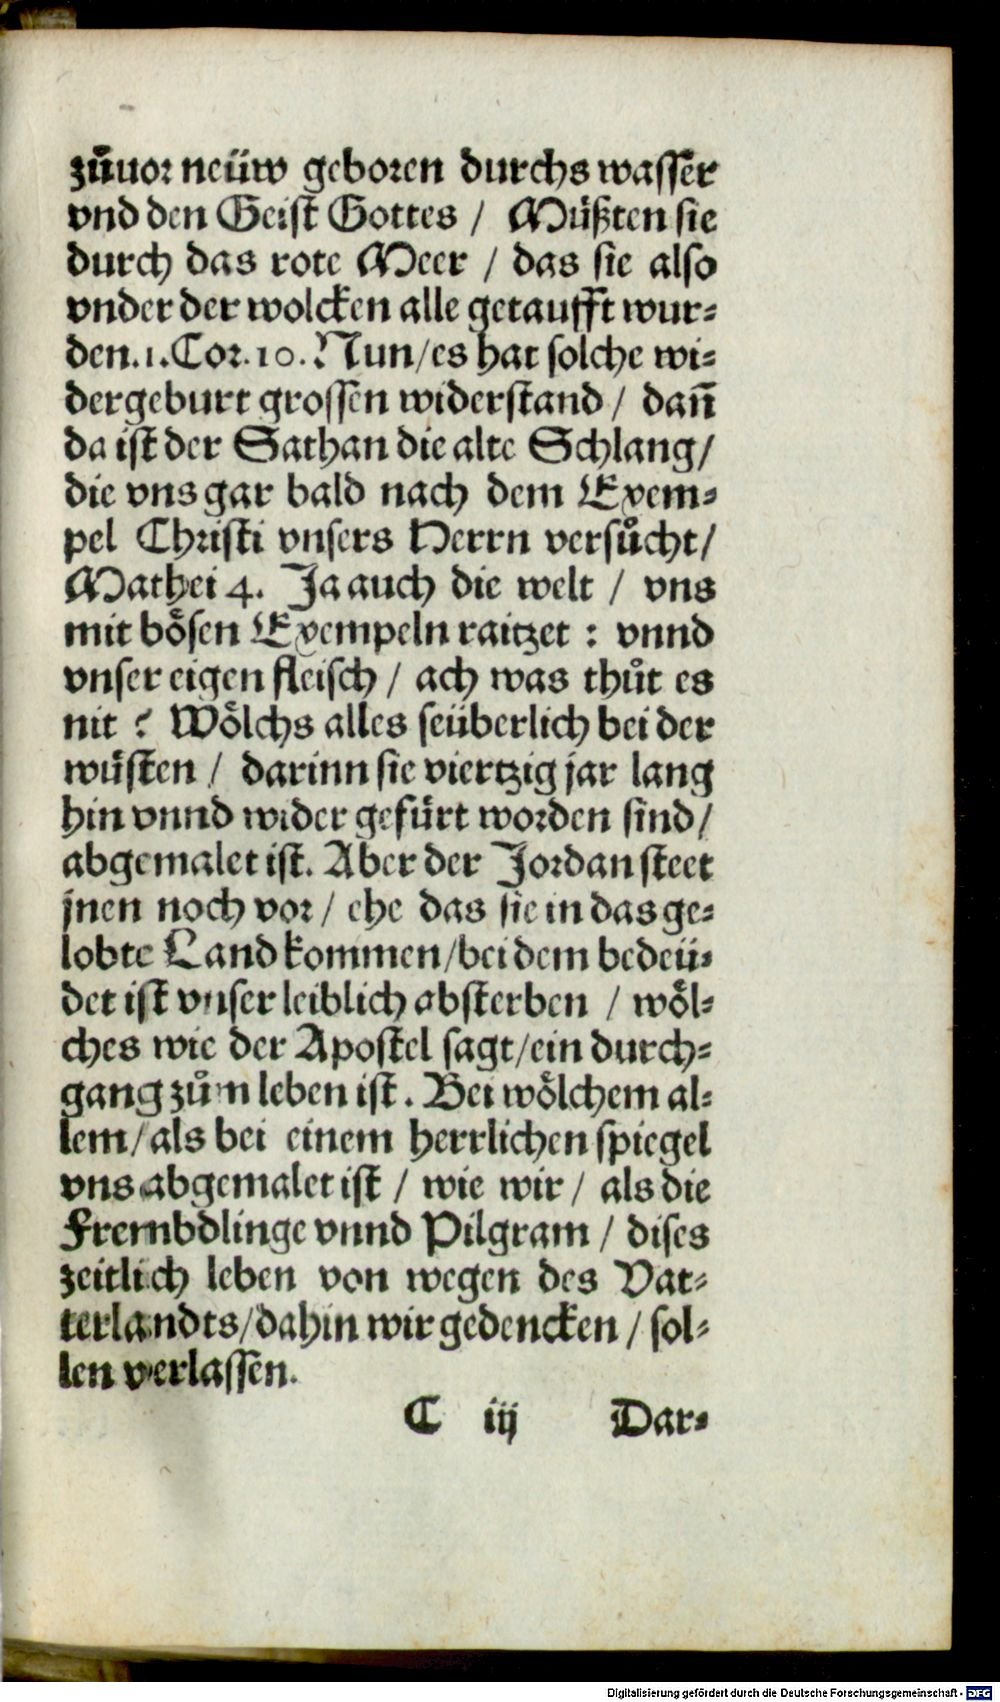 zůuor neüw geboren durchs wasser
vnd den Geist Gottes / Müßten sie
durch das rote Meer / das sie also
vnder der wolcken alle getaufft wur-
den.1.Cor.10. Nun/es hat solche wi-
dergeburt grossen widerstand / dañ
da ist der Sathan die alte Schlang/
die vns gar bald nach dem Exem-
pel Christi vnsers Herrn versůcht/
Mathei 4. Ja auch die welt / vns
mit bösen Exempeln raitzet : vnnd
vnser eigen fleisch / ach was thůt es
nit ? Wölchs alles seüberlich bei der
wüsten / darinn sie viertzig jar lang
hin vnnd wider gefürt worden sind/
abgemalet ist. Aber der Jordan steet
jnen noch vor / ehe das sie in das ge-
lobte Land kommen/bei dem bedeü-
det ist vnser leiblich absterben / wöl-
ches wie der Apostel sagt/ein durch-
gang zům leben ist. Bei wölchem al-
lem/als bei einem herrlichen spiegel
vns abgemalet ist / wie wir / als die
Frembdlinge vnnd Pilgram / dises
zeitlich leben von wegen des Vat-
terlandts/dahin wir gedencken / sol-
len verlassen.
C iij Dar-
Digitalisierung gefördert durch die Deutsche Forschungsgemeinschaft - DFG